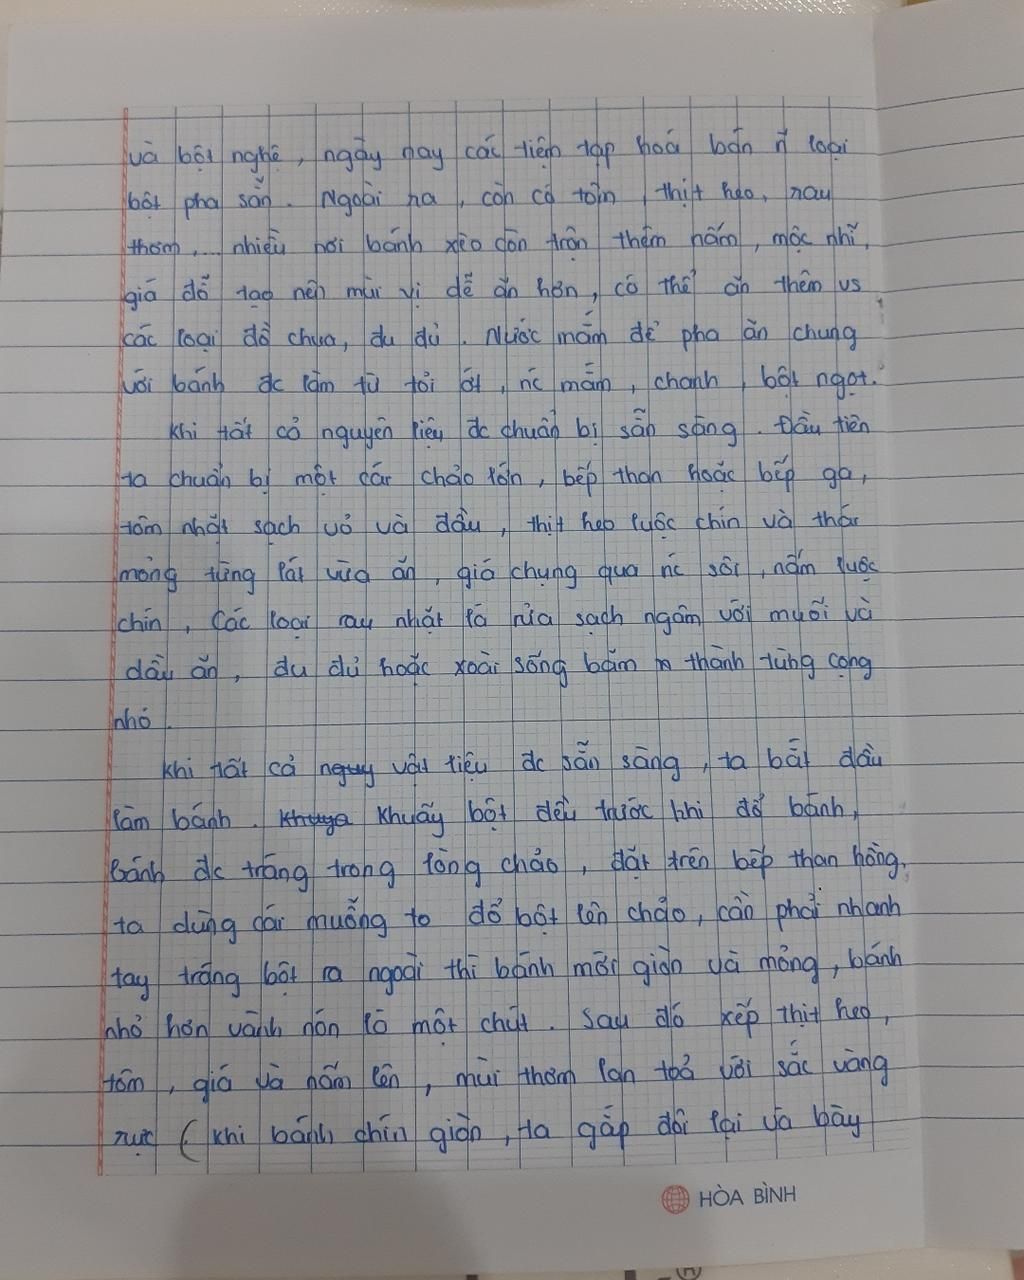 và bột nghệ, ngày nay các tiệm tạp hoá bán n̄ loại
bột pha sẵn. Ngoài ra, còn có tôm, thịt heo, rau
thơm,... nhiều nơi bánh xèo còn trộn thêm nấm, mộc nhĩ,
giá đỗ tạo nên mùi vị dễ ăn hơn, có thể ăn thêm vs
các loại đồ chua, đu đủ. Nước mắm để pha ăn chung
với bánh đc làm từ tỏi ớt, nc mắm, chanh, bột ngọt.
Khi tất cả nguyên liệu đc chuẩn bị sẵn sàng. Đầu tiên
ta chuẩn bị một cái chảo lớn, bếp than hoặc bếp ga,
tôm nhặt sạch vỏ và đầu, thịt heo luộc chín và thái
mỏng từng lát vừa ăn, giá chụng qua nc sôi, nấm luộc
chín, Các loại rau nhặt lá rửa sạch ngâm với muối và
dầu ăn, đu đủ hoặc xoài sống băm thành từng cọng
nhỏ.
Khi tất cả nguy vật liệu đc sẵn sàng, ta bắt đầu
làm bánh. Khuya Khuấy bột đều trước khi đổ bánh,
bánh đc tráng trong lòng chảo, đặt trên bếp than hồng,
ta dùng cái muỗng to đổ bột lên chảo, cần phải nhanh
tay tráng bột ra ngoài thì bánh mới giòn và mỏng, bánh
nhỏ hơn vành nón lá một chút. Sau đó xếp thịt heo,
tôm, giá và nấm lên, mùi thơm lan toả với sắc vàng
rực (khi bánh chín giòn, ta gấp đôi lại và bày
HÒA BÌNH